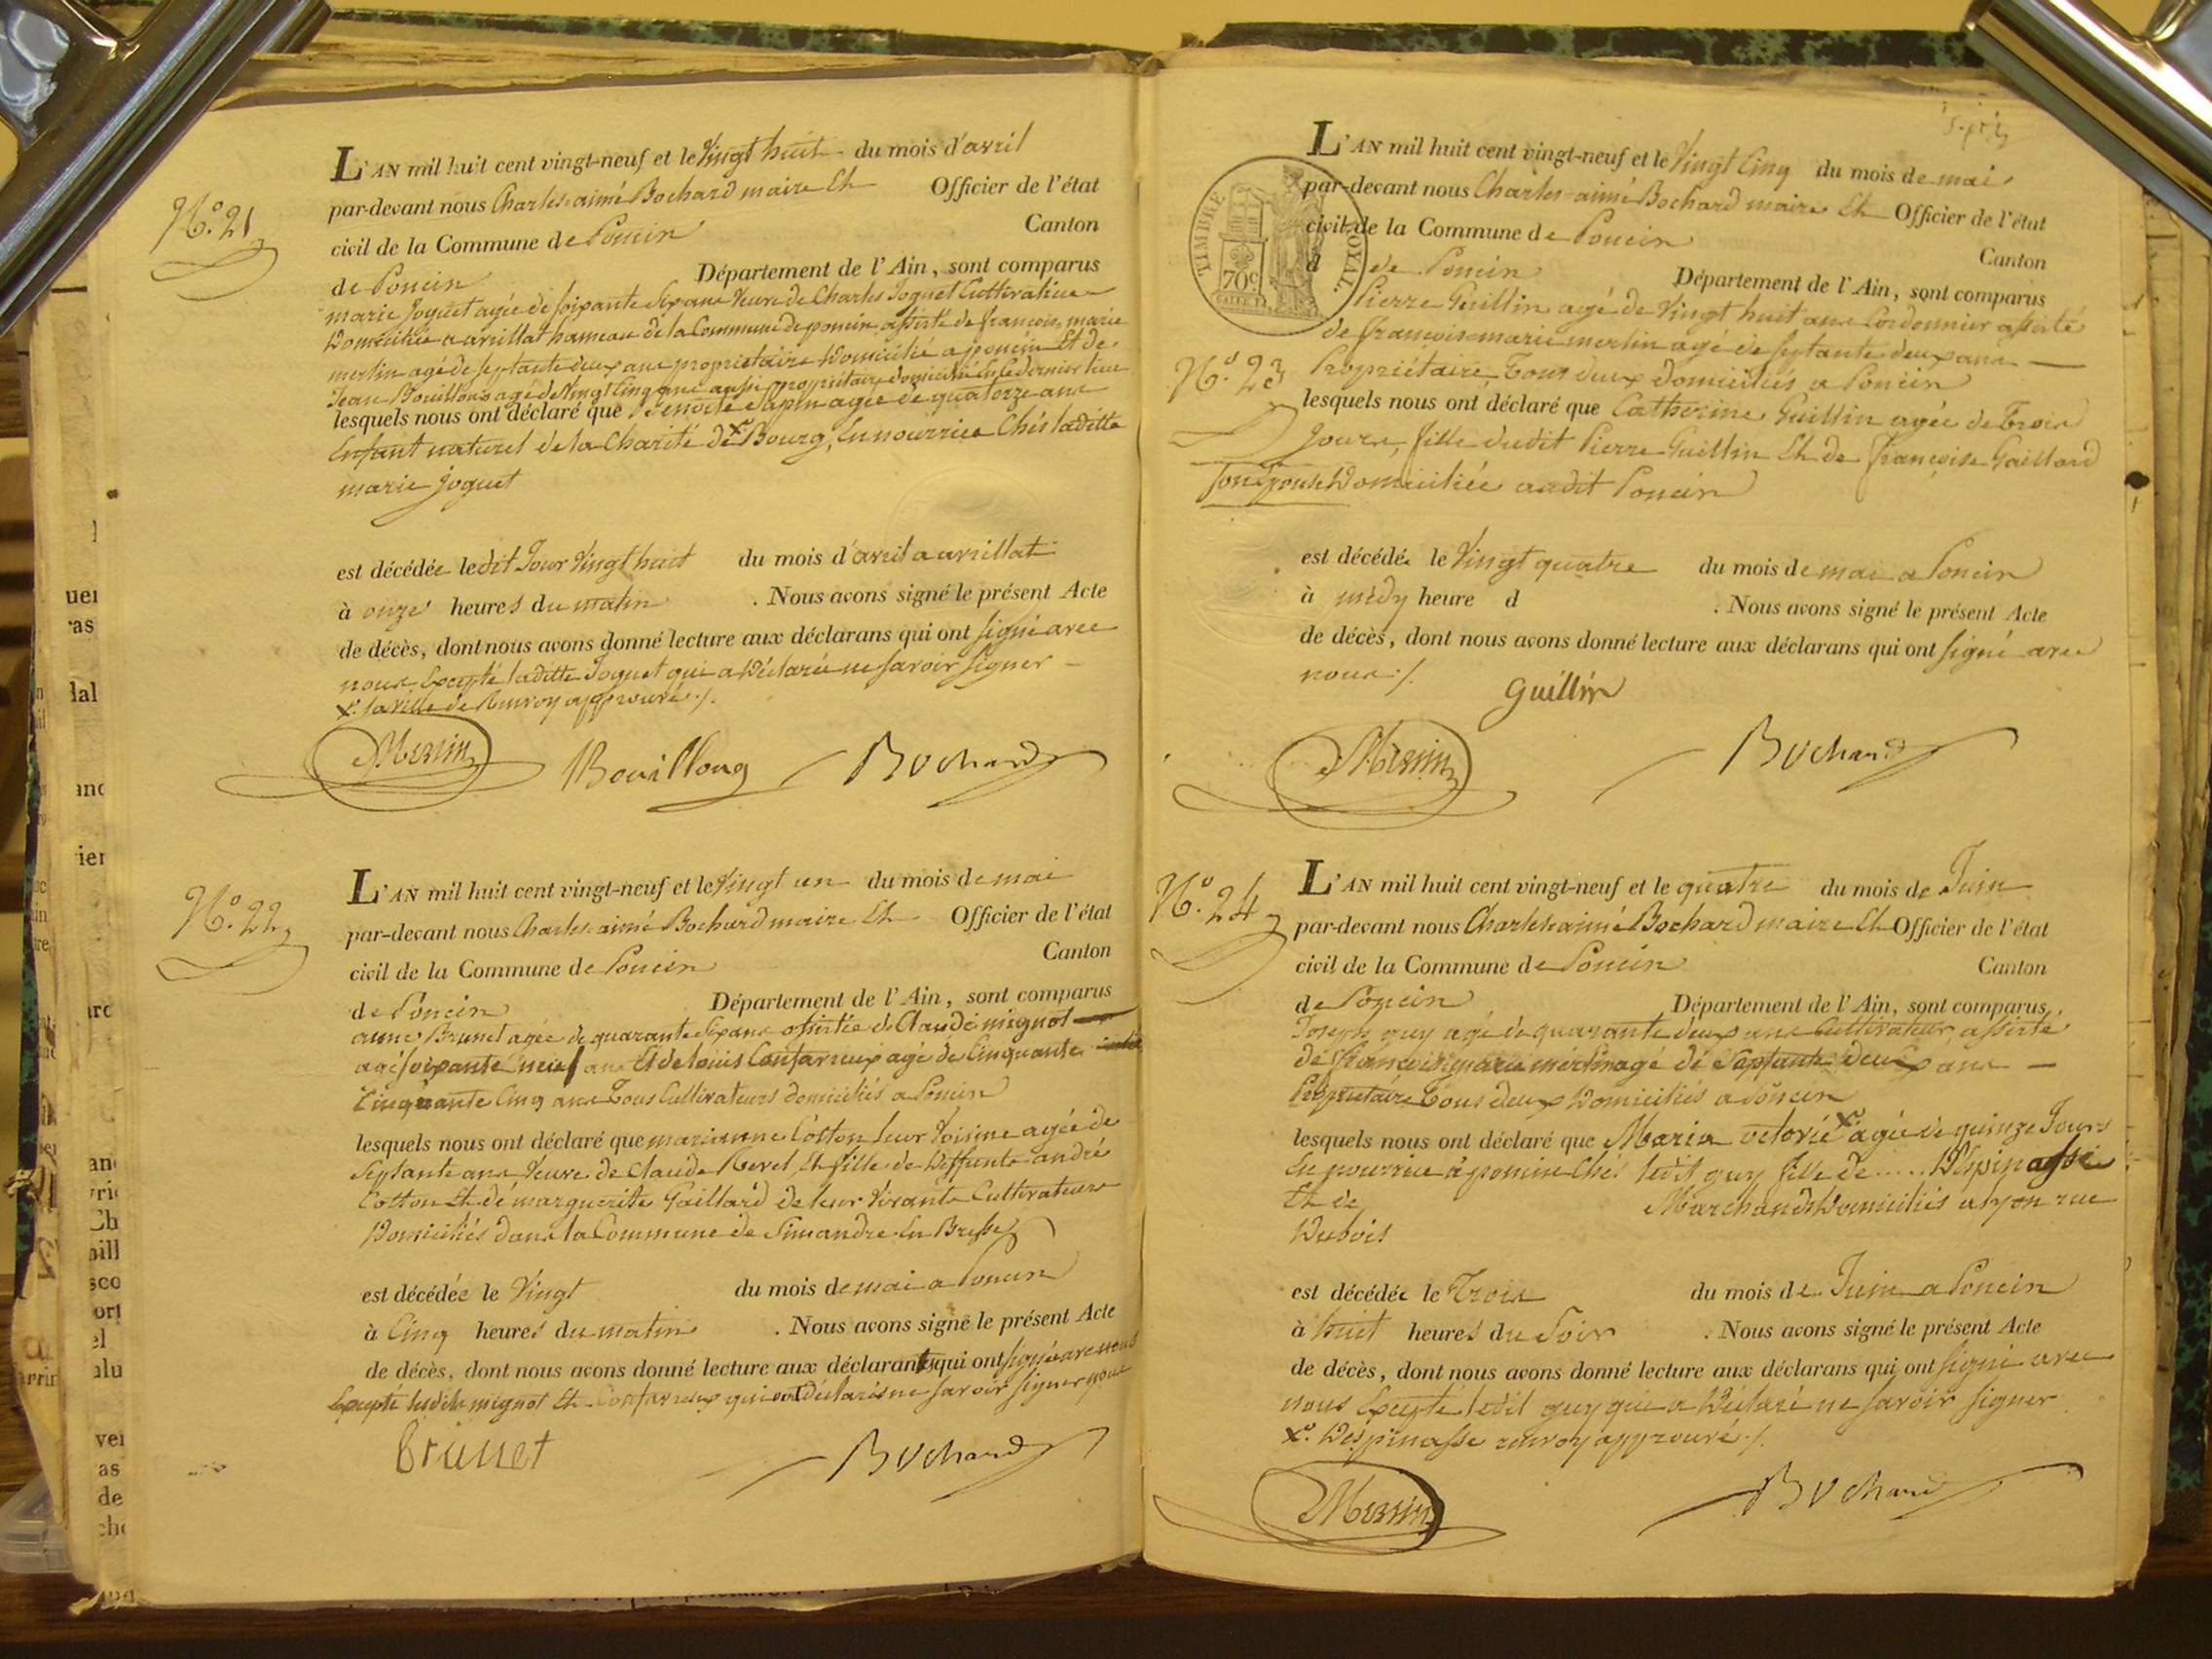 N.° 21
L'AN mil huit cent vingt-neuf et le Vingt huit du mois d'avril
par-devant nous Charles aimé Bochard maire Et Officier de l'état
civil de la Commune de Poncin Canton
de Poncin Département de l'Ain, sont comparus
marie Joguet agée de soixante six ans Veuve de Charles Joguet Cultivatrice
Domiciliée a avrillat hameau de la Commune de poncin assistée de françois marie
merlin agé de septante deux ans propriétaire Domicilié a poncin Et de
Jean Bouilloug agé de Vingt Cinq ans aussi propriétaire domicilié en ce dernier lieu
lesquels nous ont déclaré que Benoite Sapin agée de quatorze ans
Enfant naturel de la Charité de x° Bourg, En nourrice Chés laditte
marie Joguet
est décédée ledit Jour Vingt huit du mois d'avril a avrillat
à onze heures du matin . Nous avons signé le présent Acte
de décès, dont nous avons donné lecture aux déclarans qui ont signé avec
nous Excepté laditte Joguet qui a Déclarée ne savoir signer
x° la ville de Renvoy approuvé ./.
Merlin Bouilloug Bochard
N.° 22
L'AN mil huit cent vingt-neuf et le Vingt un du mois de mai
par-devant nous Charles aimé Bochard maire Et Officier de l'état
civil de la Commune de Poncin Canton
de Poncin Département de l'Ain, sont comparus
anne Brunet agée de quarante six ans assistée de Claude mignot
agé soixante neuf ans Et de louis Confavreux agé de Cinquante
Cinquante Cinq ans Tous Cultivateurs domiciliés a Poncin
lesquels nous ont déclaré que marianne Cotton leur Voisine agée de
Septante ans Veuve de Claude Revel, Et fille de Deffunts andré
Cotton Et de margueritte Gaillard de leur Vivants Cultivateurs
Domiciliés dans la Commune de Simandre En Bresse
est décédée le Vingt du mois de mai a Poncin
à Cinq heures du matin . Nous avons signé le présent Acte
de décès, dont nous avons donné lecture aux déclarants qui ont signé avec nous
Excepté lesdits mignot Et Confavreux qui ont Déclarés ne savoir signer
Brunet Bochard
L'AN mil huit cent vingt-neuf et le Vingt Cinq du mois de mai
par-devant nous Charles aimé Bochard maire Et Officier de l'état
civil de la Commune de Poncin Canton
d de Poncin Département de l'Ain, sont comparus
TIMBRE ROYAL
70c
Pierre Guillin agé de Vingt huit ans Cordonnier assisté
de françois marie merlin agé de septante deux ans
N.° 23
Propriétaire Tous deux Domiciliés a Poncin
lesquels nous ont déclaré que Catherine Guillin agée de Trois
Jours, fille dudit Pierre Guillin Et de françoise Gaillard
son Epouse Domiciliée audit Poncin
est décédée le Vingt quatre du mois de mai a Poncin
à midy heure d . Nous avons signé le présent Acte
de décès, dont nous avons donné lecture aux déclarans qui ont signé avec
nous ./.
Guillin
Merlin Bochard
N.° 24
L'AN mil huit cent vingt-neuf et le quatre du mois de Juin
par-devant nous Charles aimé Bochard maire Et Officier de l'état
civil de la Commune de Poncin Canton
de Poncin Département de l'Ain, sont comparus
Joseph guy agé de quarante deux ans Cultivateur, assisté
de françois marie merlin agé de Septante Deux ans
Propriétaire Tous deux Domiciliés a Poncin
lesquels nous ont déclaré que Maria victorie x° agée de quinze Jours
En nourrice à poncin Chés ledit guy fille de ..... Despinasse
Et de Marchands Domiciliés a lyon rue
Dubois
est décédée le Trois du mois de Juin a Poncin
à huit heures du Soir . Nous avons signé le présent Acte
de décès, dont nous avons donné lecture aux déclarans qui ont signé avec
nous Excepté ledit guy qui a Déclaré ne savoir signer
x° Despinasse renvoy approuvé ./.
Merlin Bochard